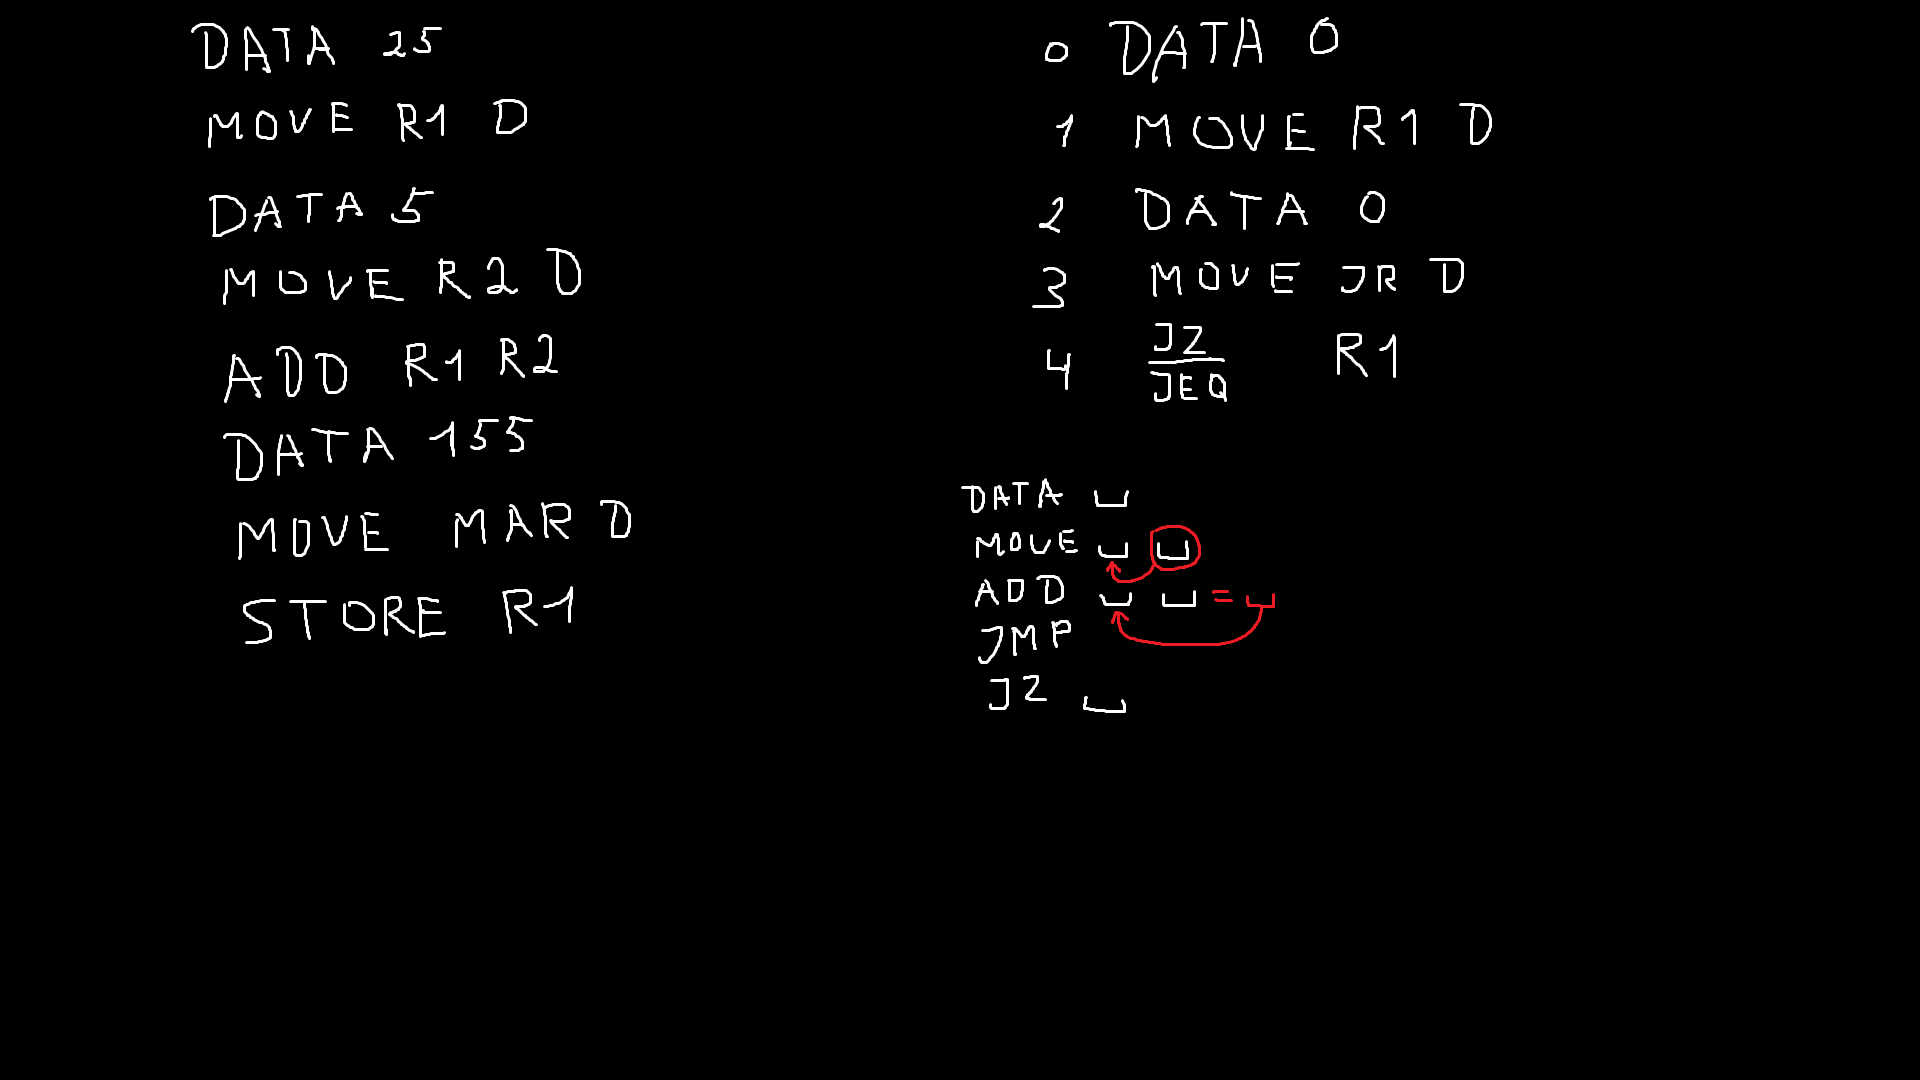 DATA 25
MOVE R1 D
DATA 5
MOVE R2 D
ADD R1 R2
DATA 155
MOVE MAR D
STORE R1
0 DATA 0
1 MOVE R1 D
2 DATA 0
3 MOVE JR D
4 JZ R1
JEQ
DATA ⎵
MOVE ⎵ ⎵
ADD ⎵ ⎵ = ⎵
JMP
JZ ⎵